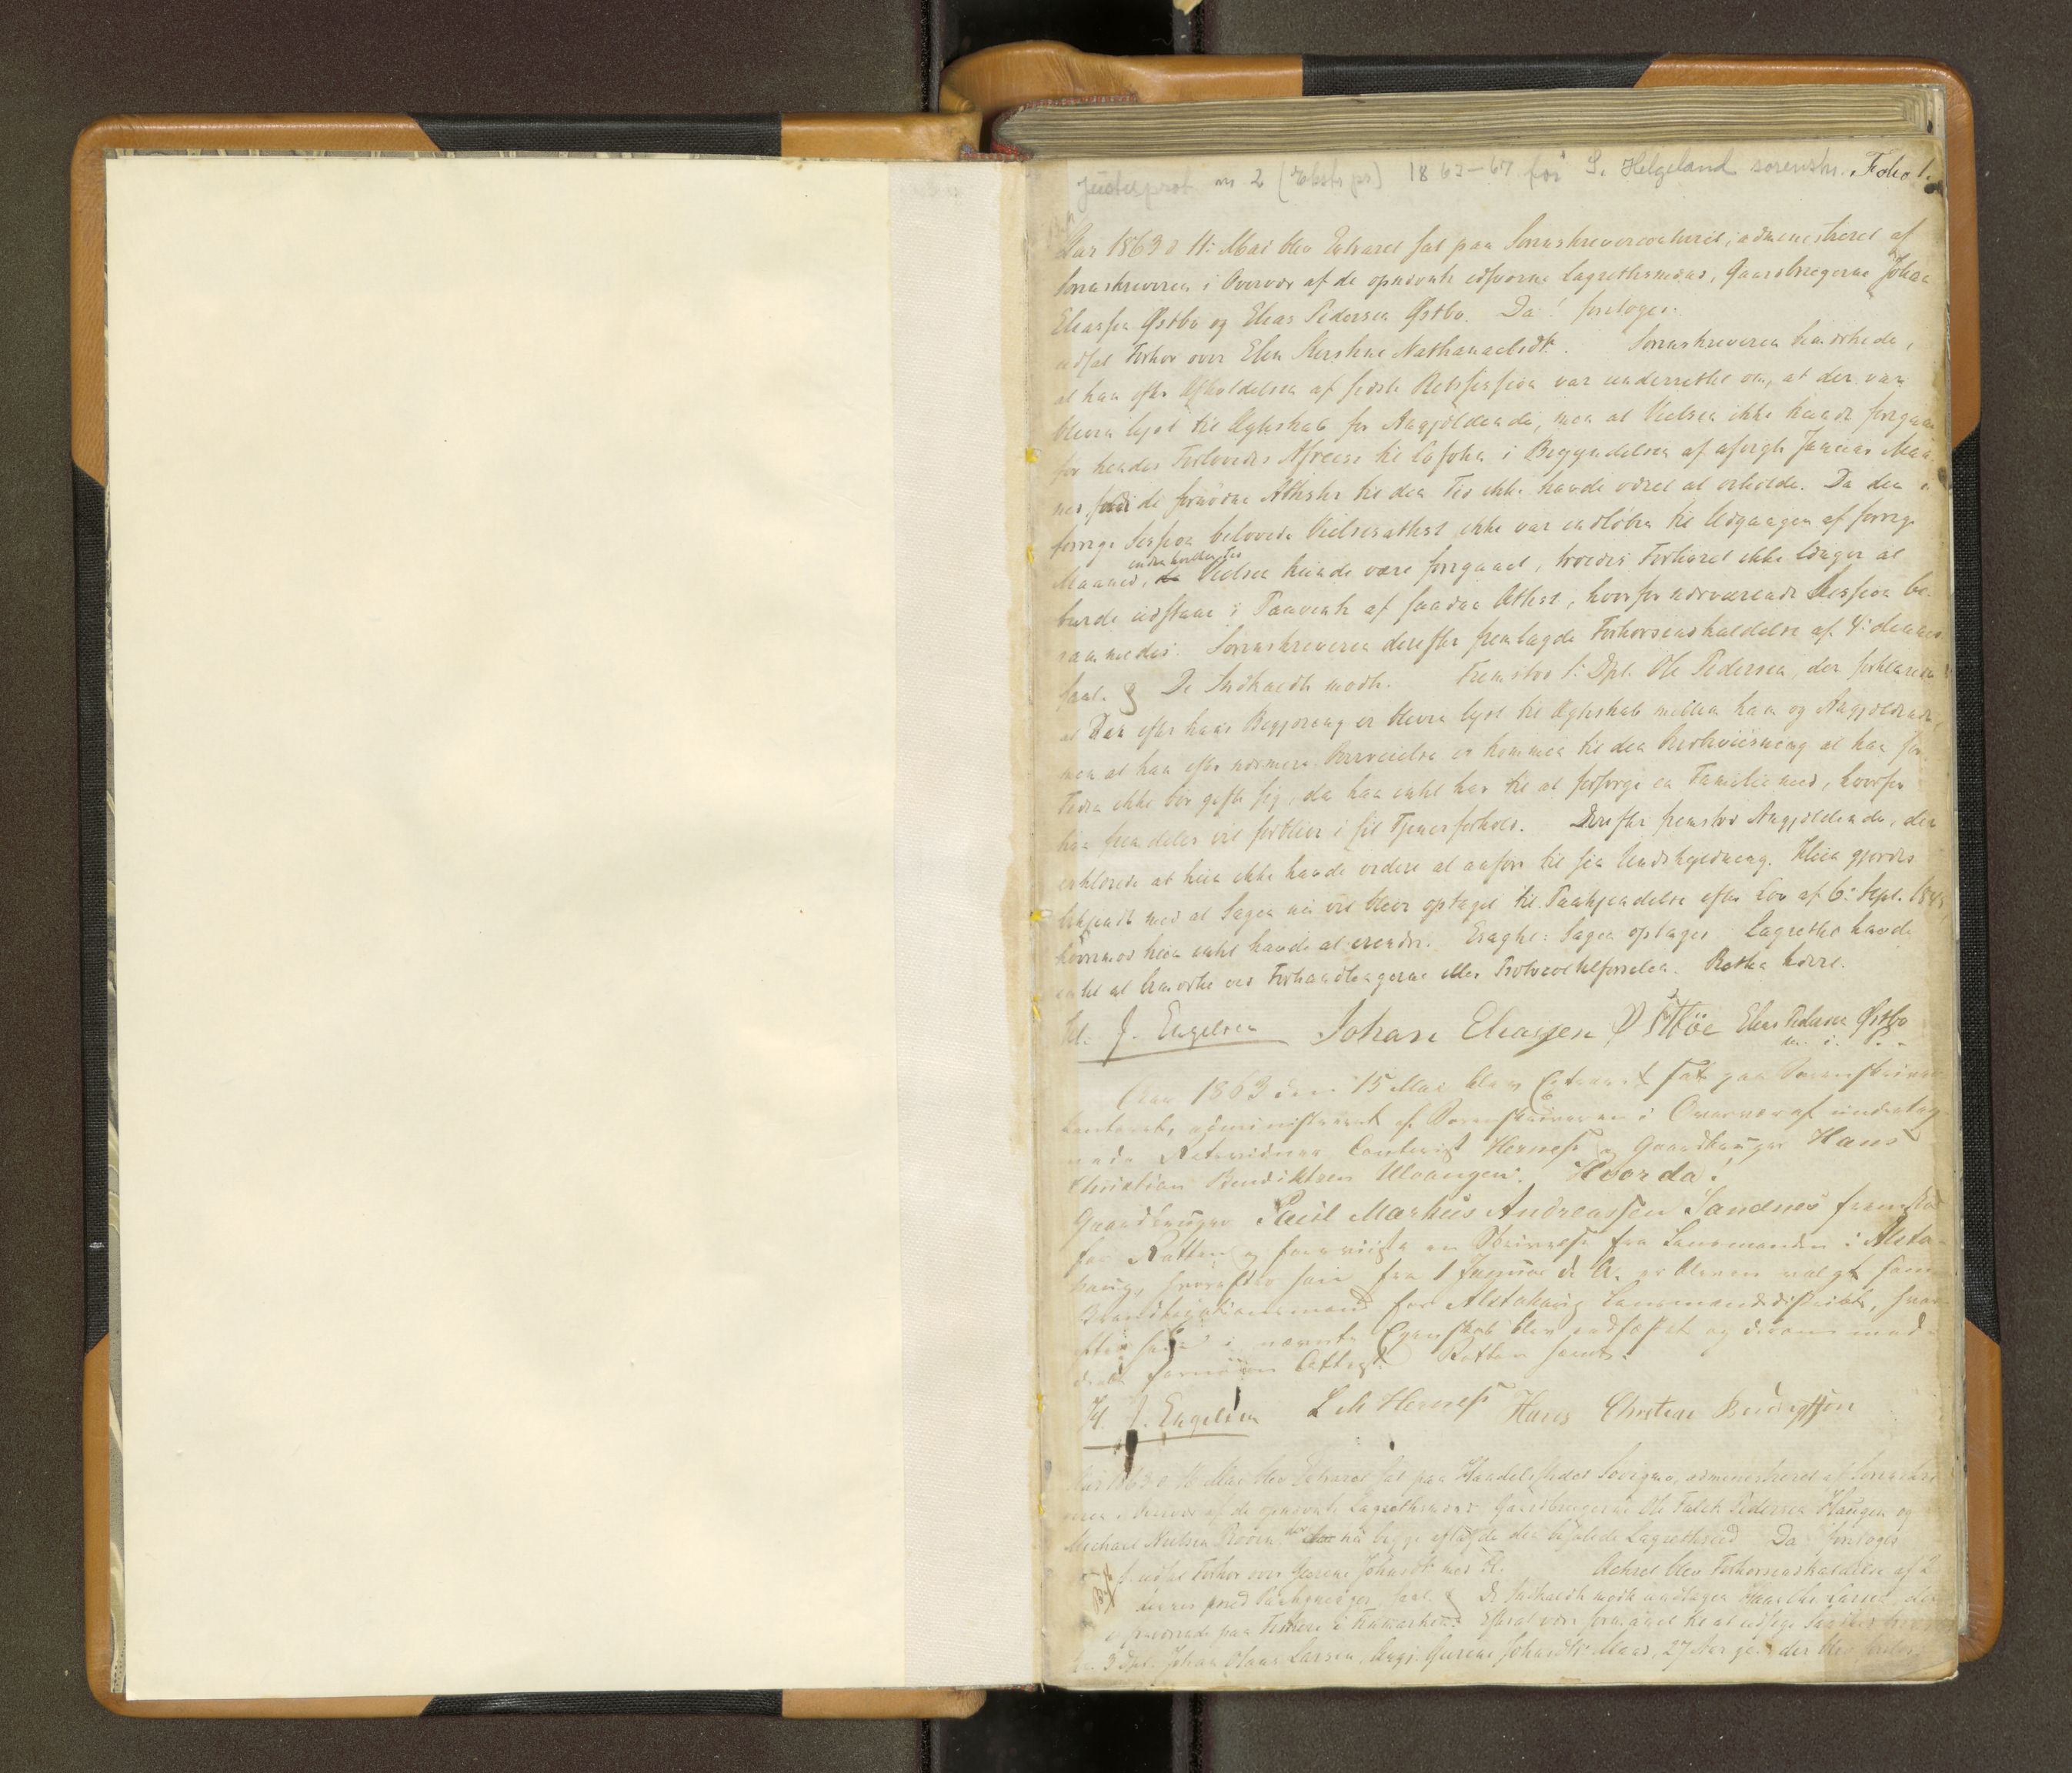 Justisprot nr 2 (Ekstr pr) 1863-67 for S. Helgeland sorenskr. Folio 1.
Aar 1863 d 11: Mai blev Extraret sat paa Sorenskrivercontoiret, administreret af
Sorenskriveren i Overvær af de opnævnte edsvorne Lagrettesmænd, Gaardbrugerne Johan
Eliassen Østbø og Elias Pedersen Østbø. Da! foretoges
udsat Forhør over Elen Kerstine Nathanaelsdtr. Sorenskriveren bemærkede,
at han efter Afholdelsen af sidste Retssession var underrettet om, at der var
bleven lyst til Ægteskab for Angjældende, men at Vielsen ikke havde foregaaet
før hendes Forlovedes Afreise til Lofoten i Begyndelsen af afvigte Januar Maa-
ned, fordi de fornødne Attester til den Tid ikke havde været at erholde. Da den i
forrige Session belovede Vielsesattest ikke var indløben til Udgangen af forrige
inden hvilken Tid
Maaned, Vielsen kunde være foregaaet, troedes Forhøret ikke længer at
burde udstaae i Paavente af saadan Attest, hvorfor nærværende Session be-
rammedes. Sorenskriveren derefter fremlagde Forhørsindkaldelse af 4: dennes
saal. De Indkaldte mødte. Fremstod 1: Dpt. Ole Pedersen, der forklarede
at der efter hans Begjæring er bleven lyst til Ægteskab mellem ham og Angjældende,
men at han efter nærmere Overveielse er kommen til den Overbeviisning at han for
Tiden ikke bør gifte sig, da han intet har til at forsørge en Familie med, hvorfor
han fremdeles vil forblive i sit Tjenerforhold. Derefter fremstod Angjældende, der
erklærede at hun ikke havde videre at anføre til sin Undskyldning. Hun gjordes
bekjendt med at Sagen nu vil blive optaget til Paakjendelse efter Lov af 6: Sept. 1845,
hvorimod hun intet havde at erindre. Eragtet: Sagen optages. Lagrettet havde
intet at bemærke ved Forhandlingerne eller Protocoltilførselen. Retten hævet.
J. Engelsen Johan Eliassen Elias Pedersen Østbø
m. i. P.
Aar 1863 den 15 Mai blev Extraret sat paa Sorenskriver-
contoret, administreret af Sorenskriveren i Overvær af underteg-
nede Retsvidner Contorist Herness og Gaardbruger Hans
Christian Bendiktsen Ulvangen. Hvor da!
Gaardbruger Paul Markus Andreassen Sandnes fremstod
for Retten og foreviiste en Skrivelse fra Lensmanden i Alsta-
haug, hvorefter han fra 1 Januar d. A. er bleven valgt som
Brandtaxationsmand for Alstahaug Lensmandsdistrict, hvor-
efter han i nævnte Egenskab blev edfæstet og derom med-
deelt fornøden Attest. Retten hævet.
J. Engelsen L M Herness Hans Christian Bendigtsøn
Aar 1863 d 16 Mai blev Extraret sat paa Handelsstedet Søvignes, administreret af Sorenskri-
veren i Overvær af de opnævnte Lagrettesmænd Gaardbrugerne Ole Falch Pedersen Haugen og
Michael Nielsen der nu begge aflagde den befalede Lagrettesed. Da foretoges
udsat Forhør over Gurine Johnsdtr med Fl. Acteret blev Forhørsindkaldelse af 2
dennes med Paategninger saal. De Indkaldte mødte undtagen Larsen, der
er fraværende paa Fiskeri i Finmarken.
3 Dpt. Johan Olaus Larsen, Angj. Gurine Johnsdtr Maas, 27 Aar g.